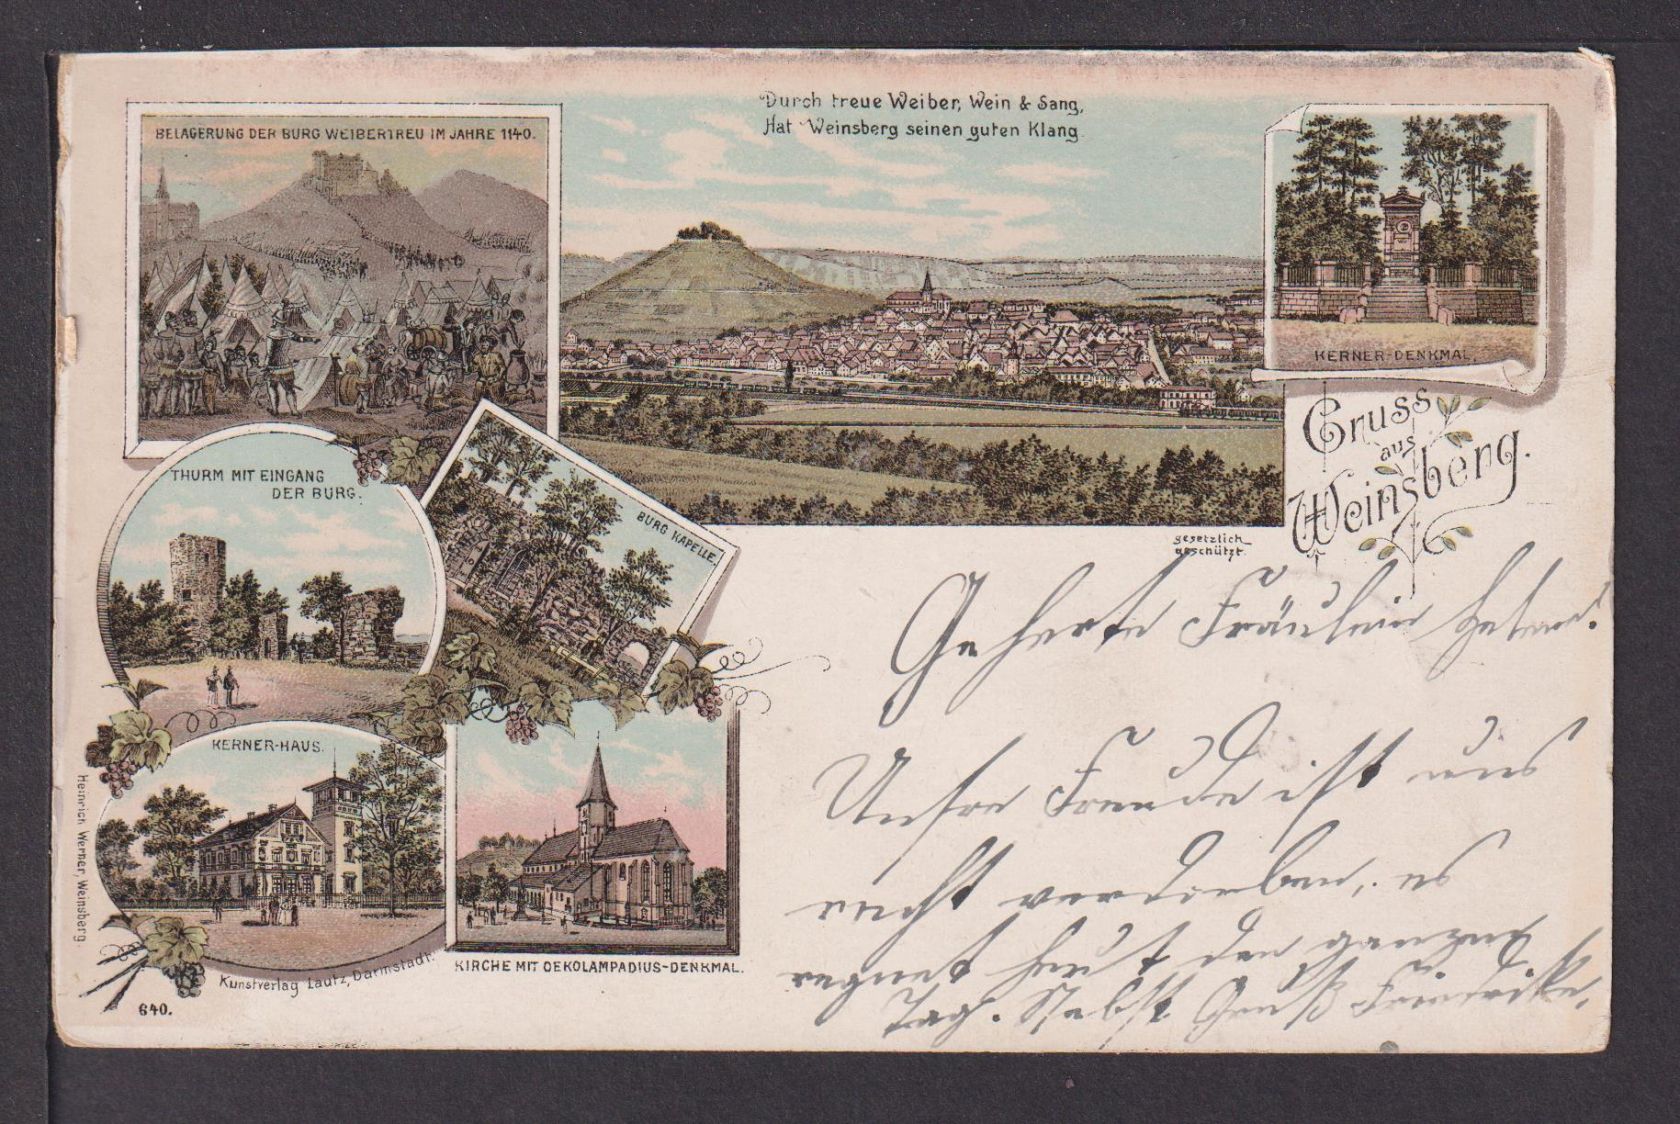 BELAGERUNG DER BURG WEIBERTREU IM JAHRE 1140.
Durch treue Weiber, Wein & Sang,
Hat Weinsberg seinen guten Klang.
KERNER-DENKMAL.
Gruss
aus
Weinsberg.
THURM MIT EINGANG
DER BURG.
BURG KAPELLE.
gesetzlich
geschützt.
KERNER-HAUS.
KIRCHE MIT OEKOLAMPADIUS-DENKMAL.
Heinrich Werner, Weinsberg.
Kunstverlag Lautz, Darmstadt.
640.
Geherte Fräulein
Unsre Freude ist uns
recht verdorben, es
regnet heut den ganzen
Tag. Nebst Gruß Friedrike.